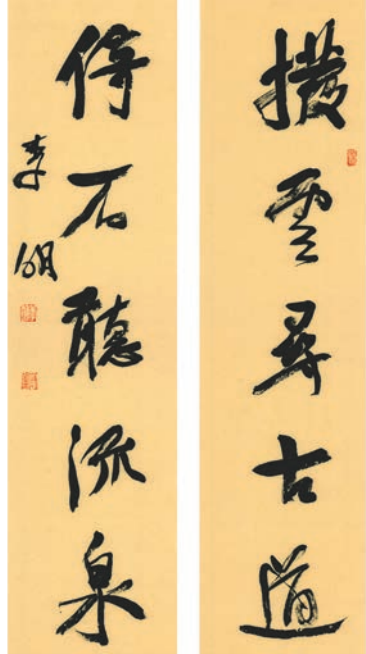 撥雲尋古道
倚石聽流泉
李明